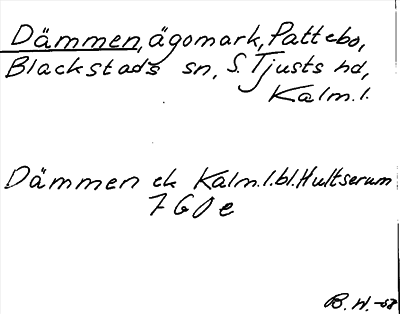 Dämmen, ägomark, Pattebo,
Blackstads sn, S. Tjusts hd,
Kalm.l.
Dämmen ek Kalm.l.bl. Hultserum
7 G 0 e
B. W. -58